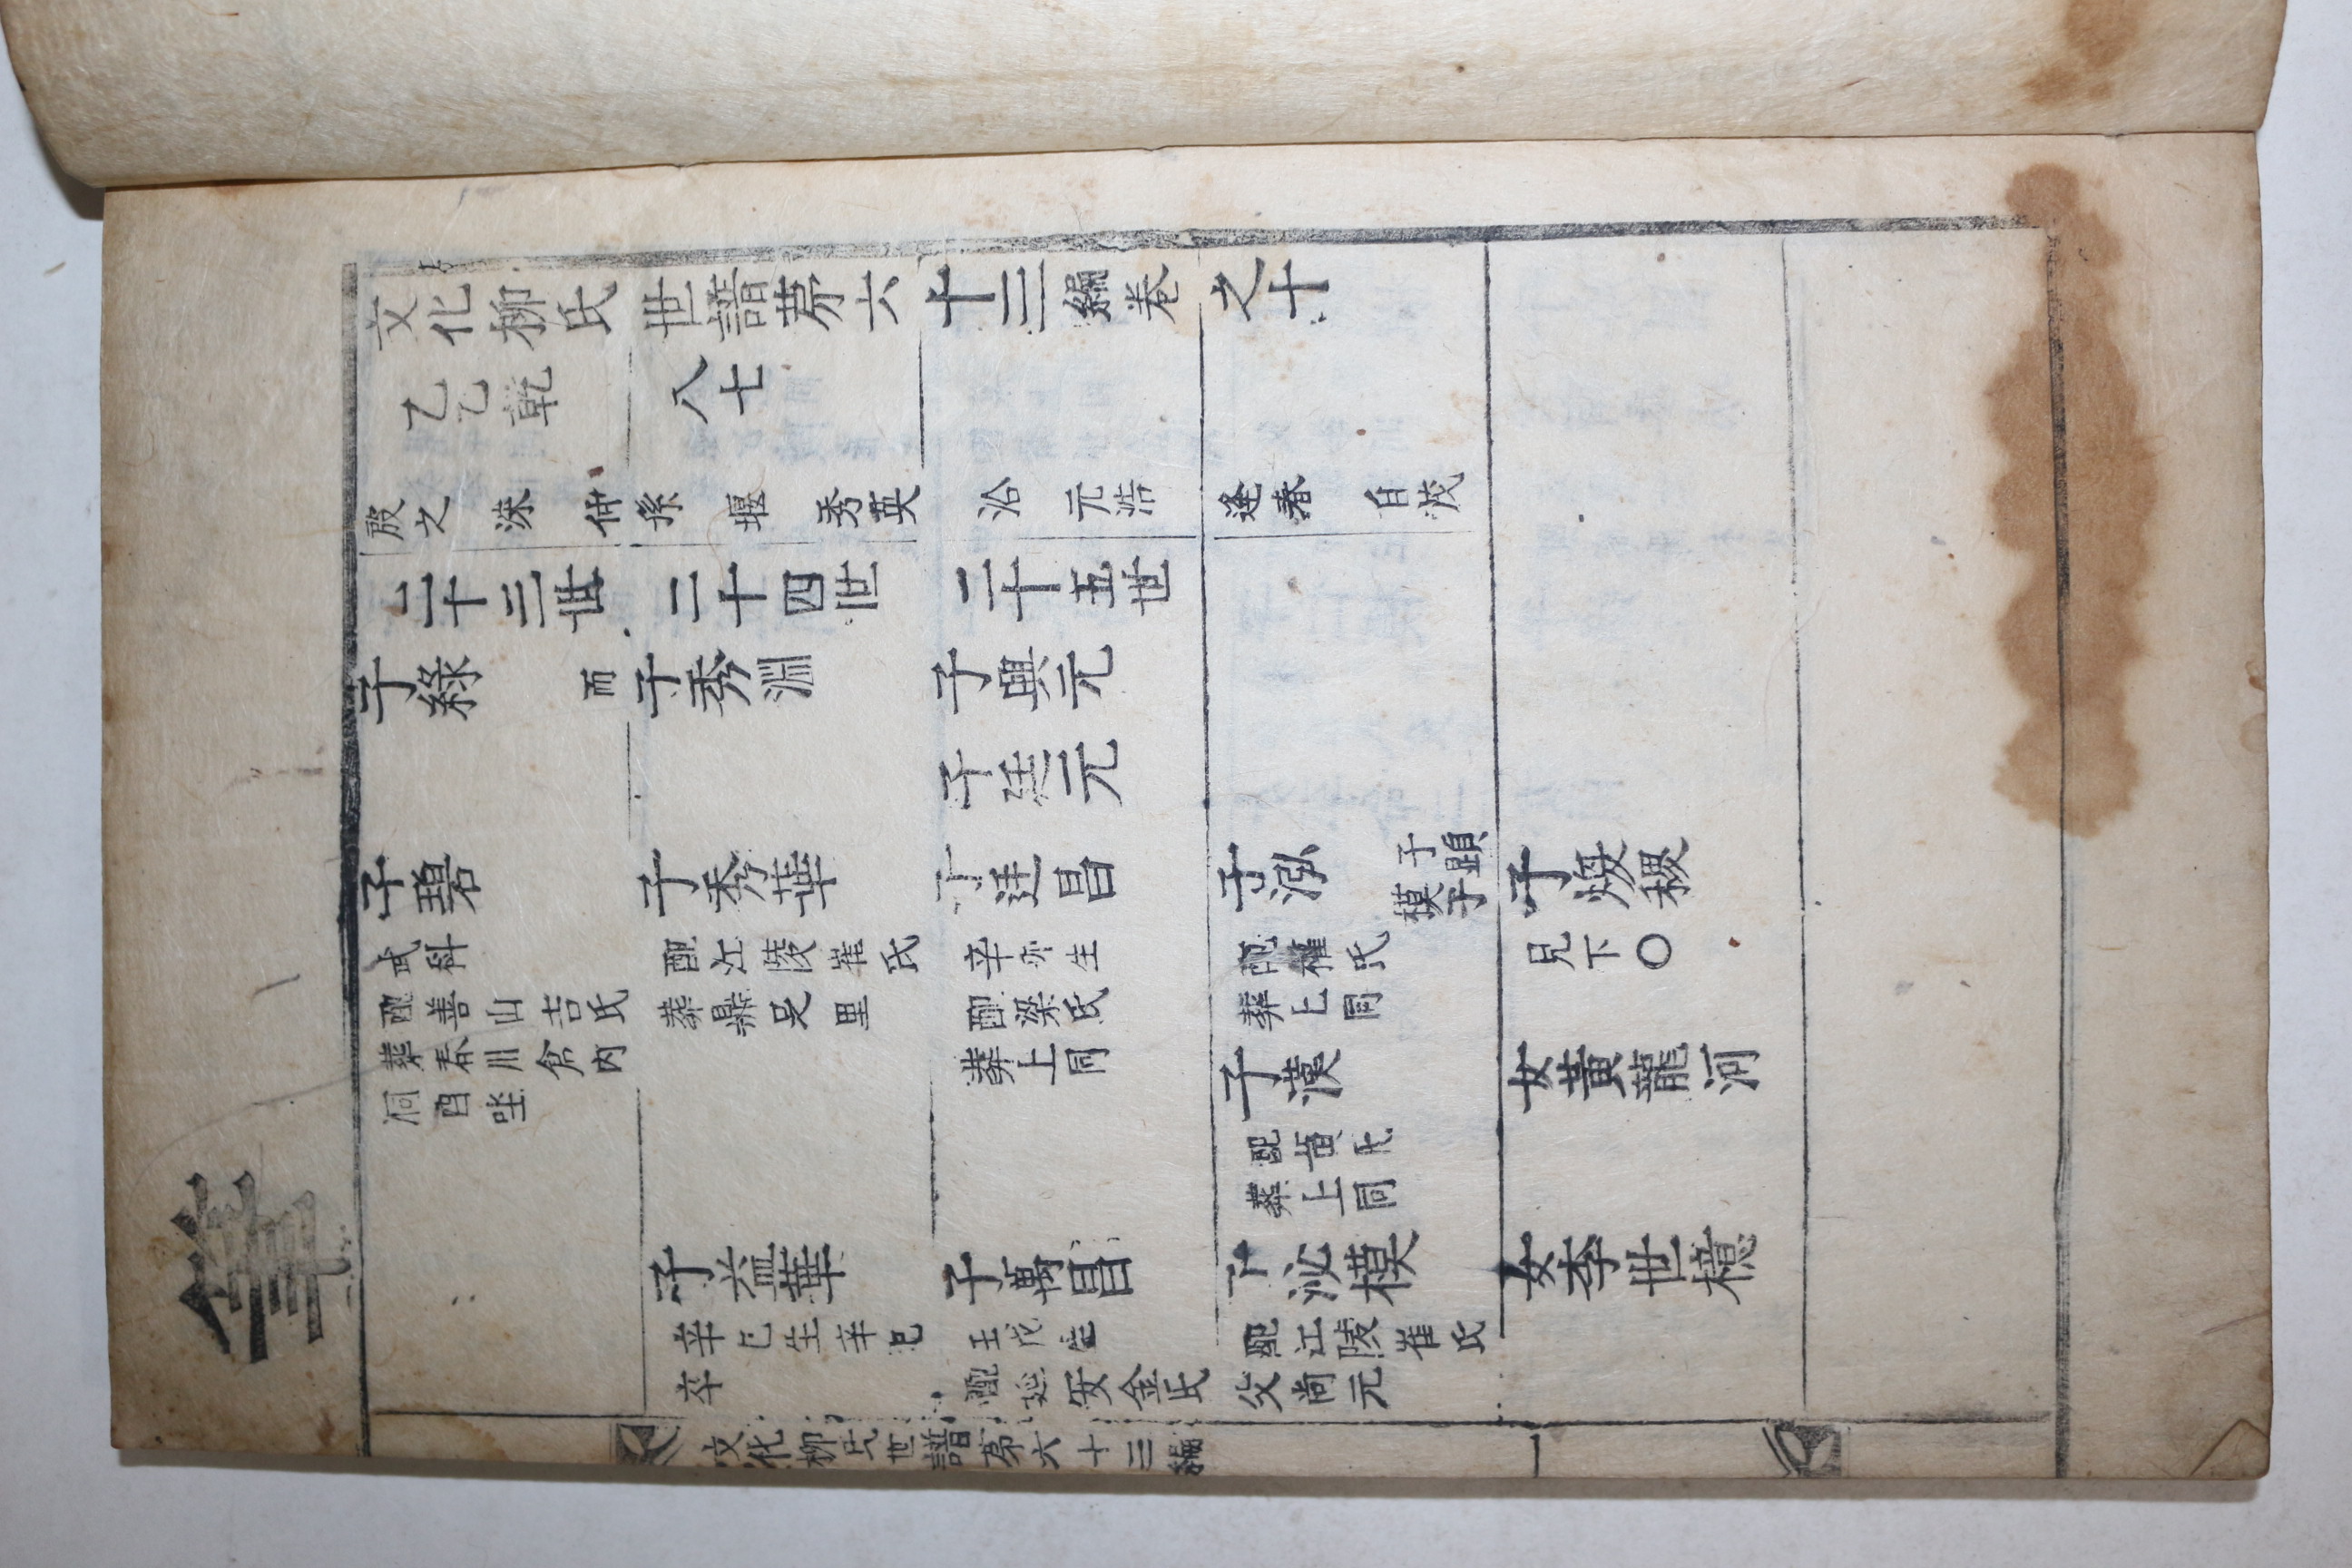 文化柳氏世譜苐六十三編卷之十
乙乙乾 八七
殷之 洙 仲孫 堰 秀英 沿 元浩 逢春 自茂
二十三世 二十四世 二十五世
子綠 而 子秀淵 子興元
子廷元
子碧 子秀華 子廷昌 子泓 子顕 子模 子煥稷
武科 配江陵崔氏 辛亦生 配權氏 見下〇
配善山吉氏 葬鼎足里 配梁氏 葬上同
葬春川倉內 葬上同 子漢 女黃龍河
洞酉坐
配黃氏
葬上同
子益華 子萬昌 子泌模 女李世檍
辛巳生辛巳 壬戊生 配江陵崔氏
卒 配延安金氏 父尚元
文化柳氏世譜苐六十三編
華